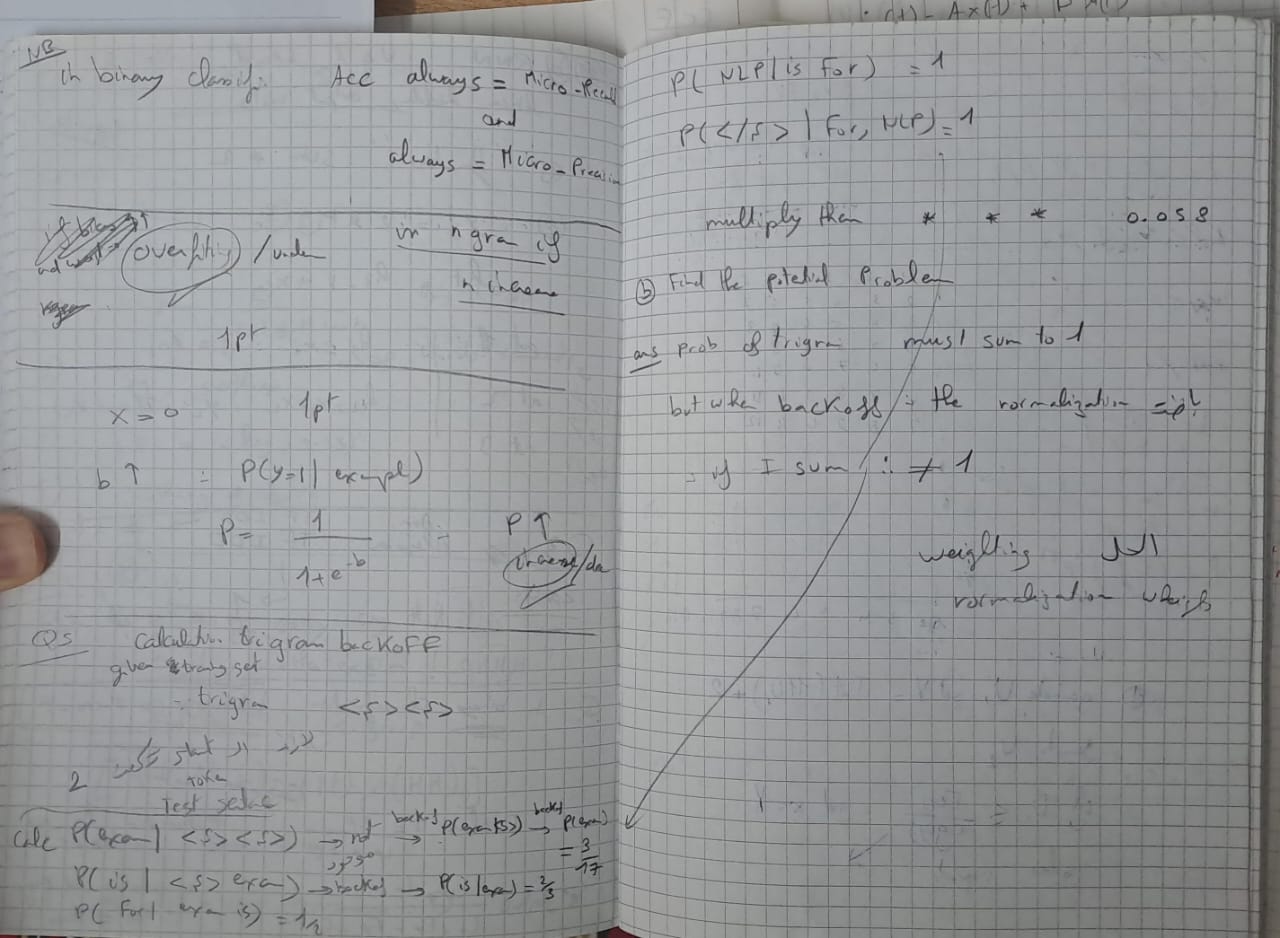 NB
in binary classif. Acc always = Micro-Recall
and
always = Micro-Precision
overfitting / under
in n gram if
n increase
1pt
x = 0 1pt
b ↑ : P(y=1 | exampl)
P = 1 / 1+e^-b = P ↑
increase/de
Q5 Calculation trigram backoff
given training set
trigram <s><s>
2 start ال
token
test sentence
Calc P(exam | <s><s>) → not → backoff P(exam|<s>) → backoff P(exam)
مش موجود = 3/17
P(is | <s> exam) → backoff → P(is|exam) = 2/3
P(for | exam is) = 1/2
P(NLP | is for) = 1
P(</s> | for, NLP) = 1
multiply them * * * 0.058
(b) Find the potential Problem
ans prob of trigram must sum to 1
but when backoff ∴ the normalization
∴ if I sum ∴ ≠ 1
الحل weighting
normalization weights